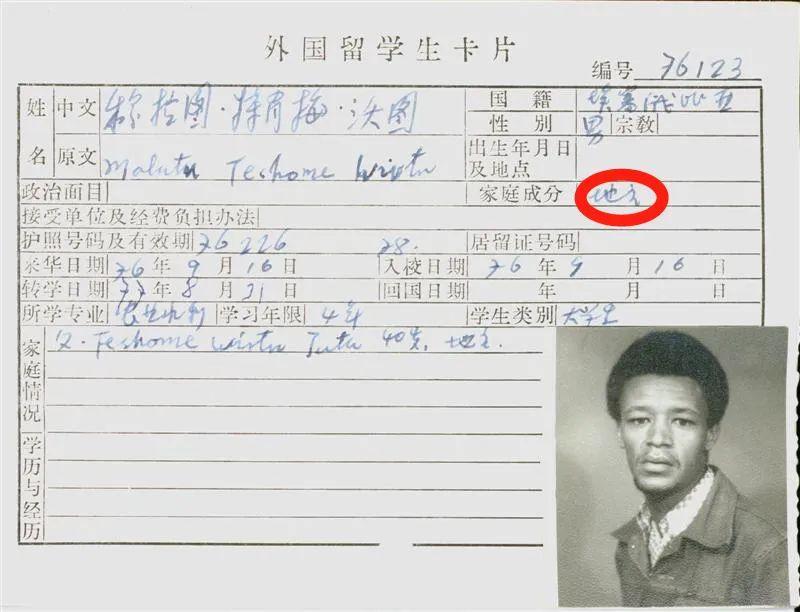 外国留学生卡片
编号 76123
姓名 中文 穆拉图·特肖梅·沃图 国籍 埃塞俄比亚
性别 男 宗教
原文 Malutu Teshome Wirtu 出生年月日及地点
政治面目 家庭成分 地主
接受单位及经费负担办法
护照号码及有效期 76226 78. 居留证号码
来华日期 76年9月16日 入校日期 76年9月16日
转学日期 77年8月31日 回国日期 年 月 日
所学专业 学习年限 4年 学生类别 大学生
家庭情况 父·Teshome Wirtu Tutu 40岁, 地主.
学历与经历